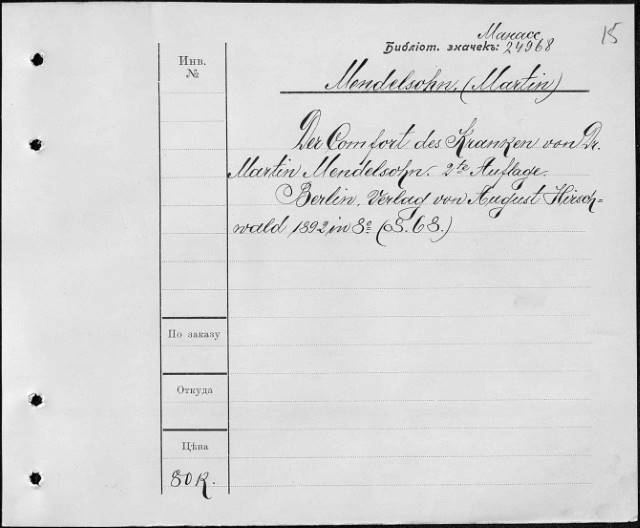 Манасс
Библіот. значекъ: 24968
15
Инв.
№
Mendelsohn, (Martin)
Der Comfort des Kranken von Dr.
Martin Mendelsohn. 2te Auflage.
Berlin, Verlag von August Hirsch=
wald 1892 in 8º (S. 68.)
По заказу
Откуда
Цѣна
80 к.